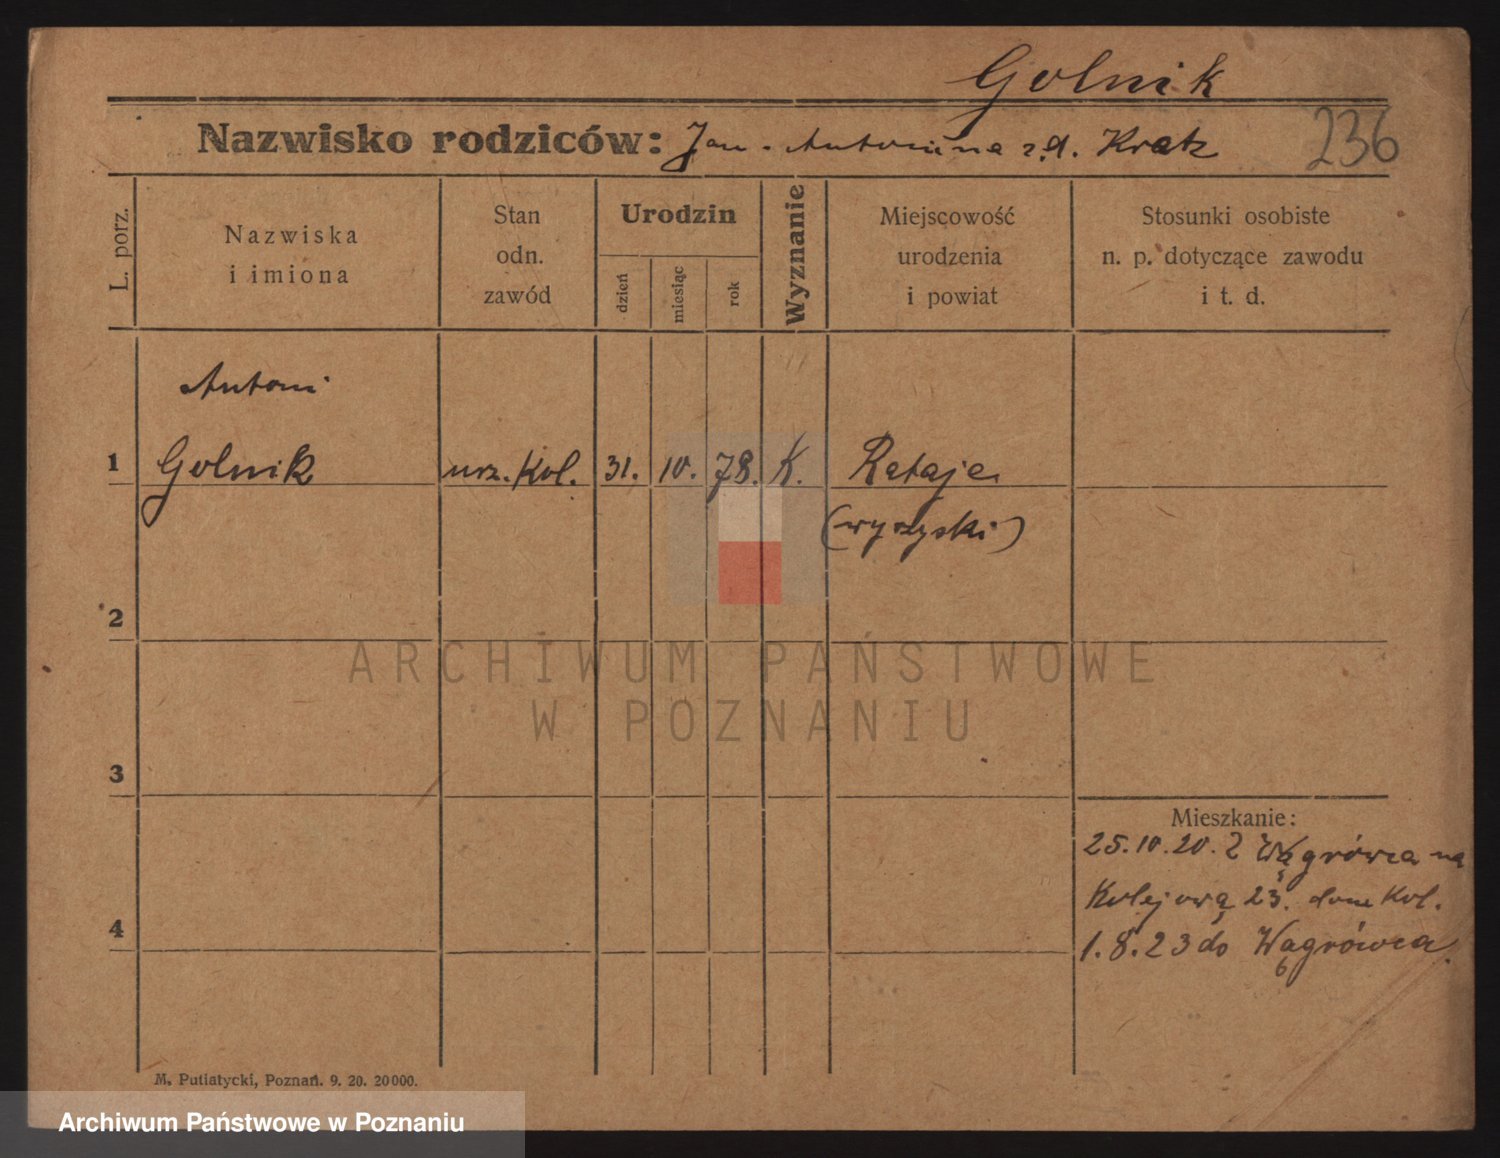 Golnik
Nazwisko rodziców: Jan - Antonina z d. Kratz
236
L. porz.
Nazwiska
i imiona
Stan
odn.
zawód
Urodzin
dzień
miesiąc
rok
Wyznanie
Miejscowość
urodzenia
i powiat
Stosunki osobiste
n. p. dotyczące zawodu
i t. d.
Antoni
1 Golnik urz. Kol. 31. 10. 78. K. Rataje
(wyrzyski)
2
ARCHIWUM PAŃSTWOWE
W POZNANIU
3
Mieszkanie:
25.10.20. Z Wągrówca na
Kolejową 23. dom Kol.
4
1.8.23 do Wągrówca.
M. Putiatycki, Poznań. 9. 20. 20000.
Archiwum Państwowe w Poznaniu